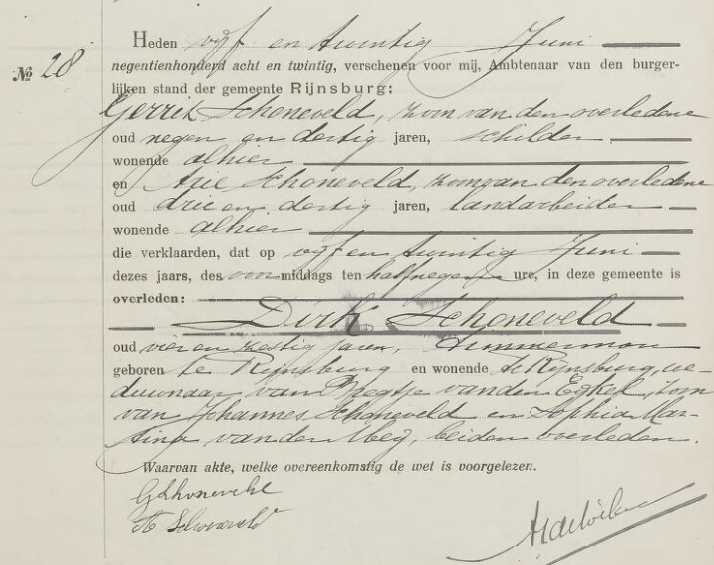 Heden vijf en twintig Juni
No 28
negentienhonderd acht en twintig, verschenen voor mij, Ambtenaar van den burger-
lijken stand der gemeente Rijnsburg:
Gerrit Schoneveld, zoon van den overledene
oud negen en dertig jaren, schilder
wonende alhier
en Arie Schoneveld, zoon van den overledene
oud drie en dertig jaren, landarbeider
wonende alhier
die verklaarden, dat op vijf en twintig Juni
dezes jaars, des voormiddags ten half negen ure, in deze gemeente is
overleden:
Dirk Schoneveld
oud vier en zestig jaren, timmerman
geboren te Rijnsburg en wonende te Rijnsburg, we-
duwnaar van van den Eijkel, zoon
van Johannes Schoneveld en Sophia Mar-
tina van der Meij, beiden overleden.
Waarvan akte, welke overeenkomstig de wet is voorgelezen.
G Schoneveld
A Schoneveld